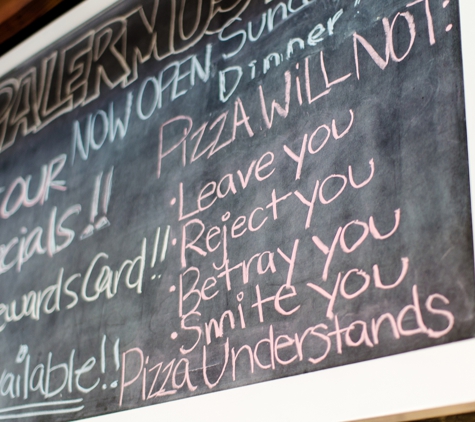 PALERMO'S
NOW OPEN Sunday
Dinner!
OUR
!!
Rewards Card!!
Available!!
PIZZA WILL NOT:
· Leave you
· Reject you
· Betray you
· Smite you
Pizza Understands